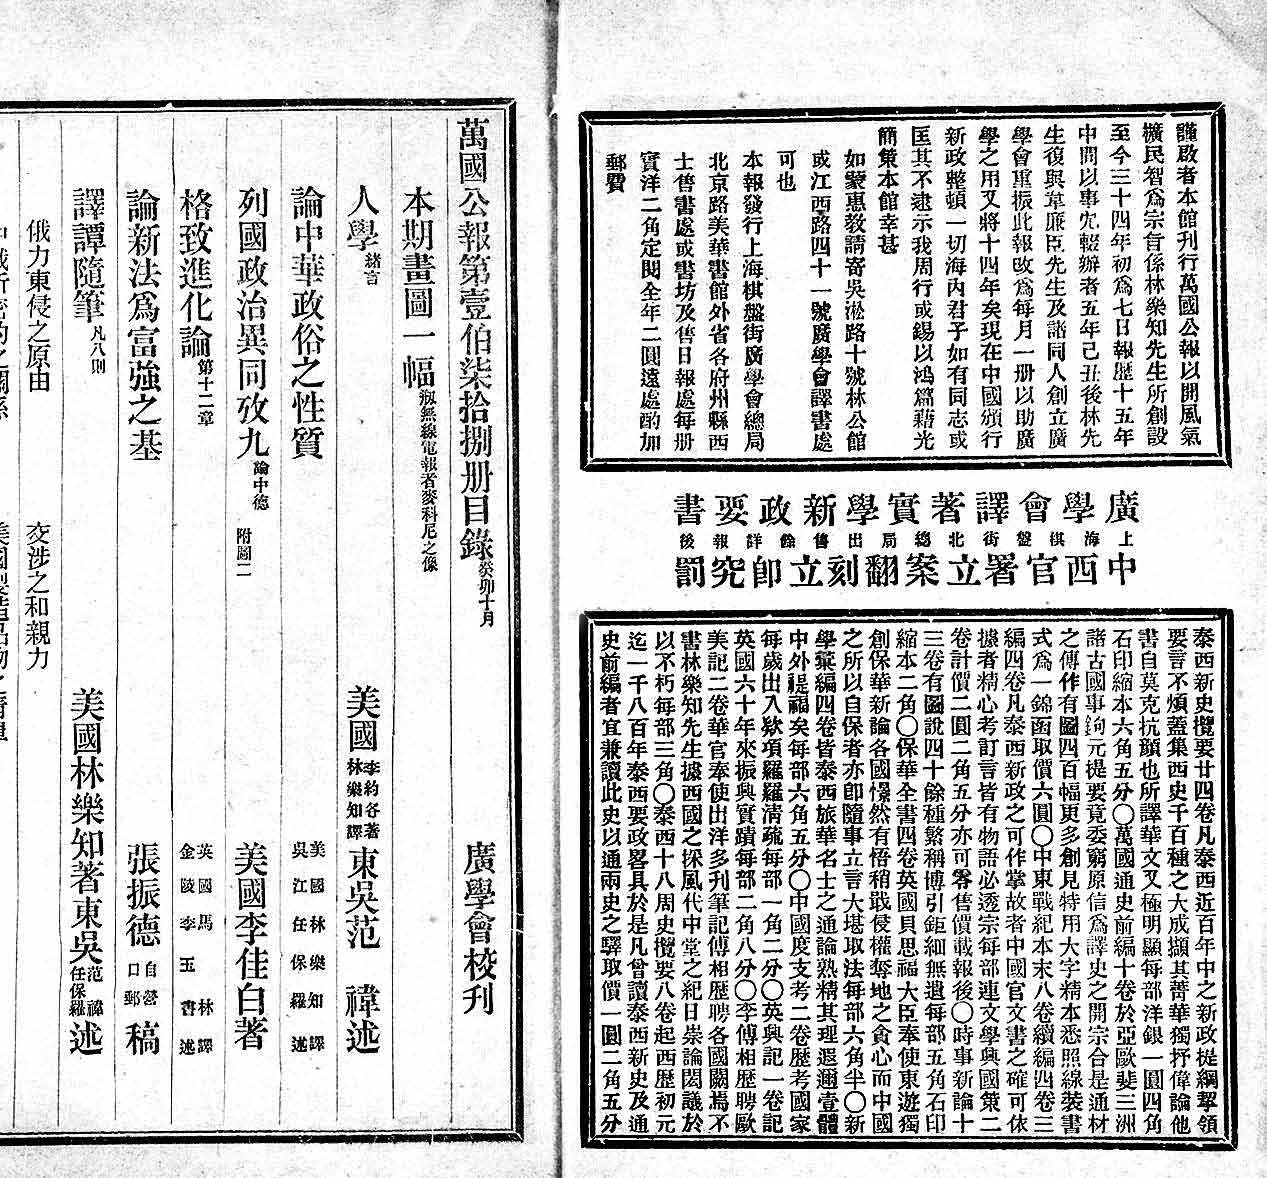 謹啟者本館刊行萬國公報以開風氣
擴民智爲宗旨係林樂知先生所創設
至今三十四年初爲七日報歷十五年
中間以事宂輟辦者五年己丑後林先
生復與韋廉臣先生及諸同人創立廣
學會重振此報改爲每月一册以助廣
學之用又將十四年矣現在中國頒行
新政整頓一切海內君子如有同志或
匡其不逮示我周行或錫以鴻篇藉光
簡策本館幸甚
如蒙惠教請寄吳淞路十號林公館
或江西路四十一號廣學會譯書處
可也
本報發行上海棋盤街廣學會總局
北京路美華書館外省各府州縣西
士售書處或書坊及售日報處每册
實洋二角定閱全年二圓遠處酌加
郵費
廣學會譯著實學新政要書
上海棋盤街北總局出售餘詳報後
中西官署立案翻刻立即究罰
泰西新史攬要廿四卷凡泰西近百年中之新政提綱挈領
要言不煩蓋集西史千百種之大成擷其菁華獨抒偉論他
書自莫克抗顏也所譯華文又極明顯每部洋銀一圓四角
石印縮本六角五分〇萬國通史前編十卷於亞歐斐三洲
諸古國事鉤元提要竟委窮原信爲譯史之開宗合是通材
之傳作有圖四百幅更多創見特用大字精本悉照線裝書
式爲一錦函取價六圓〇中東戰紀本末八卷續編四卷三
編四卷凡泰西新政之可作掌故者中國官文書之確可依
據者精心考訂言皆有物語必透宗每部連文學興國策二
卷計價二圓二角五分亦可零售價載報後〇時事新論十
三卷有圖說四十餘種繁稱博引鉅細無遺每部五角石印
縮本二角〇保華全書四卷英國貝思福大臣奉使東遊獨
創保華新論各國憬然有悟稍戢侵權奪地之貪心而中國
之所以自保者亦卽隨事立言大堪取法每部六角半〇新
學彙編四卷皆泰西旅華名士之通論熟精其理遐邇壹體
中外禔福矣每部六角五分〇中國度支考二卷歷考國家
每歲出入欵項羅羅清疏每部一角二分〇英興記一卷記
英國六十年來振興實蹟每部二角八分〇李傅相歷聘歐
美記二卷華官奉使出洋多刊筆記傅相歷聘各國關焉不
書林樂知先生據西國之採風代中堂之紀日崇論閎議於
以不朽每部三角〇泰西十八周史攬要八卷起西歷初元
迄一千八百年泰西要政畧具於是凡曾讀泰西新史及通
史前編者宜兼讀此史以通兩史之驛取價一圓二角五分
萬國公報第壹伯柒拾捌册目錄癸卯十月 廣學會校刊
本期畫圖一幅 剏無線電報者麥科尼之像
人學緒言 美國李約各著林樂知譯東吳范禕述
論中華政俗之性質 美國林樂知譯吳江任保羅述
列國政治異同攷九論中德 附圖二 美國李佳白著
格致進化論第十二章 英國馬林譯金陵李玉書述
論新法爲富強之基 張振德自營口郵稿
譯譚隨筆凡八則 美國林樂知著東吳范禕任保羅述
俄力東侵之原由 交涉之和親力